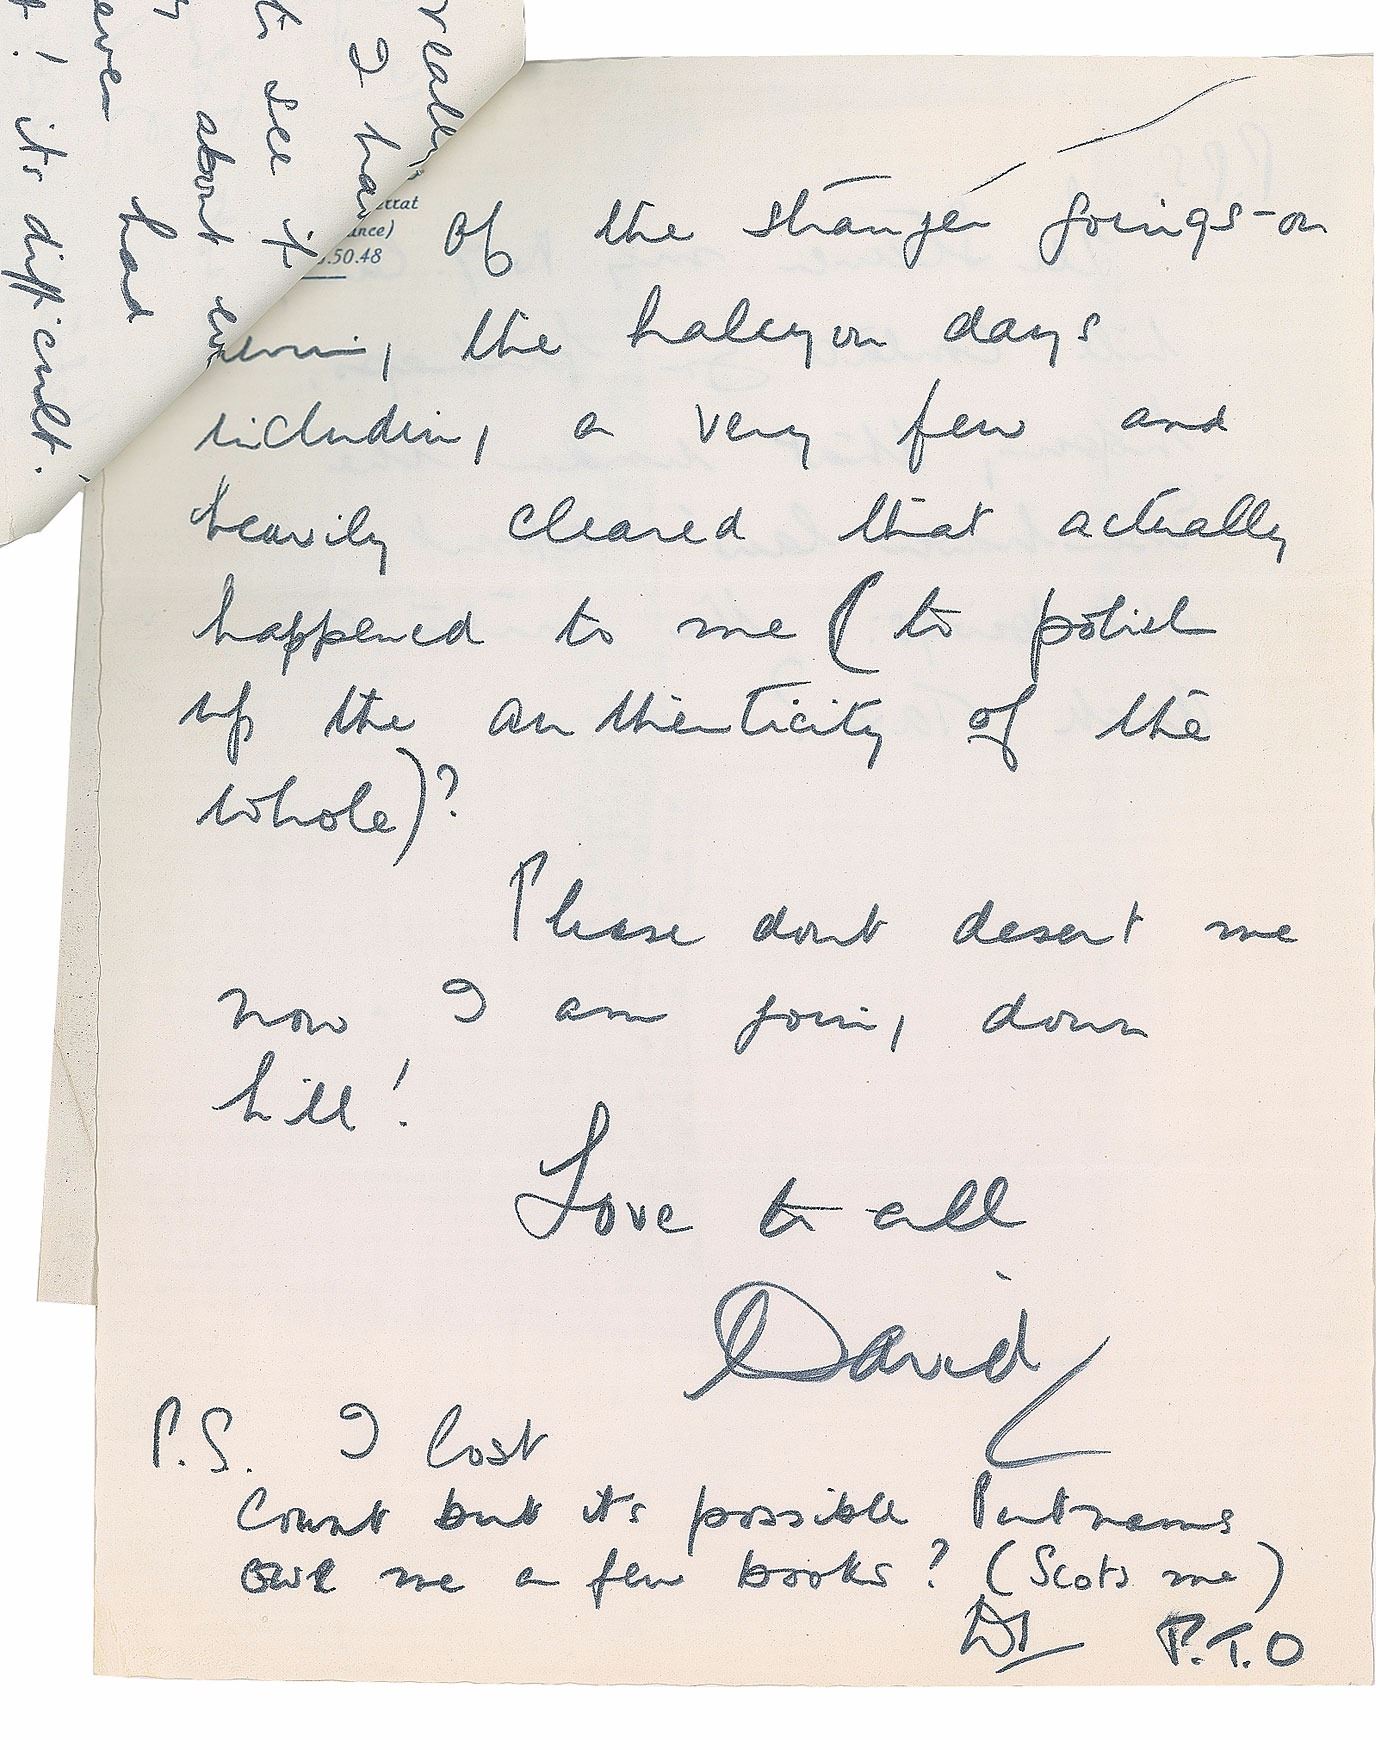 really
I ha
to see it
about
ever had
t! its difficult.
rrat
ance)
.50.48
of the stranger goings-on
, the halcyon days
including a very few and
heavily cleared that actually
happened to me (to polish
up the authenticity of the
whole)?
Please dont desert me
now I am going down
hill!
Love to all
David
P.S. I lost
count but it's possible Putnams
owe me a few books? (Scots me)
D P.T.O